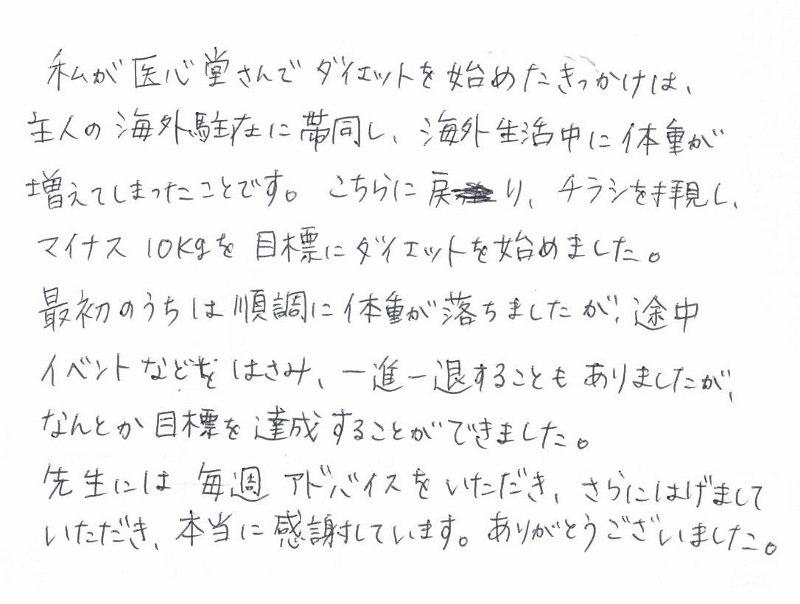 私が医心堂さんでダイエットを始めたきっかけは、
主人の海外駐在に帯同し、海外生活中に体重が
増えてしまったことです。こちらに戻り、チラシを拝見し、
マイナス10Kgを目標にダイエットを始めました。
最初のうちは順調に体重が落ちましたが、途中
イベントなどをはさみ、一進一退することもありましたが、
なんとか目標を達成することができました。
先生には毎週アドバイスをいただき、さらにはげまして
いただき、本当に感謝しています。ありがとうございました。